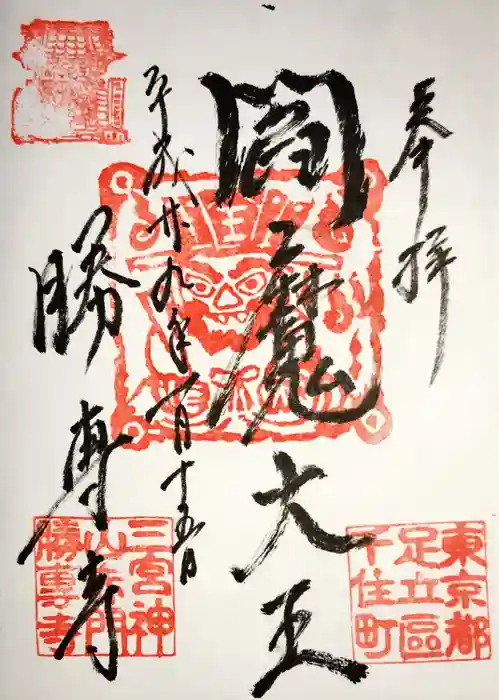 奉拝
閻魔大王
平成廿九年一月十五日
勝専寺
東京都
足立區
千住町
三宮神
山大門
勝專寺